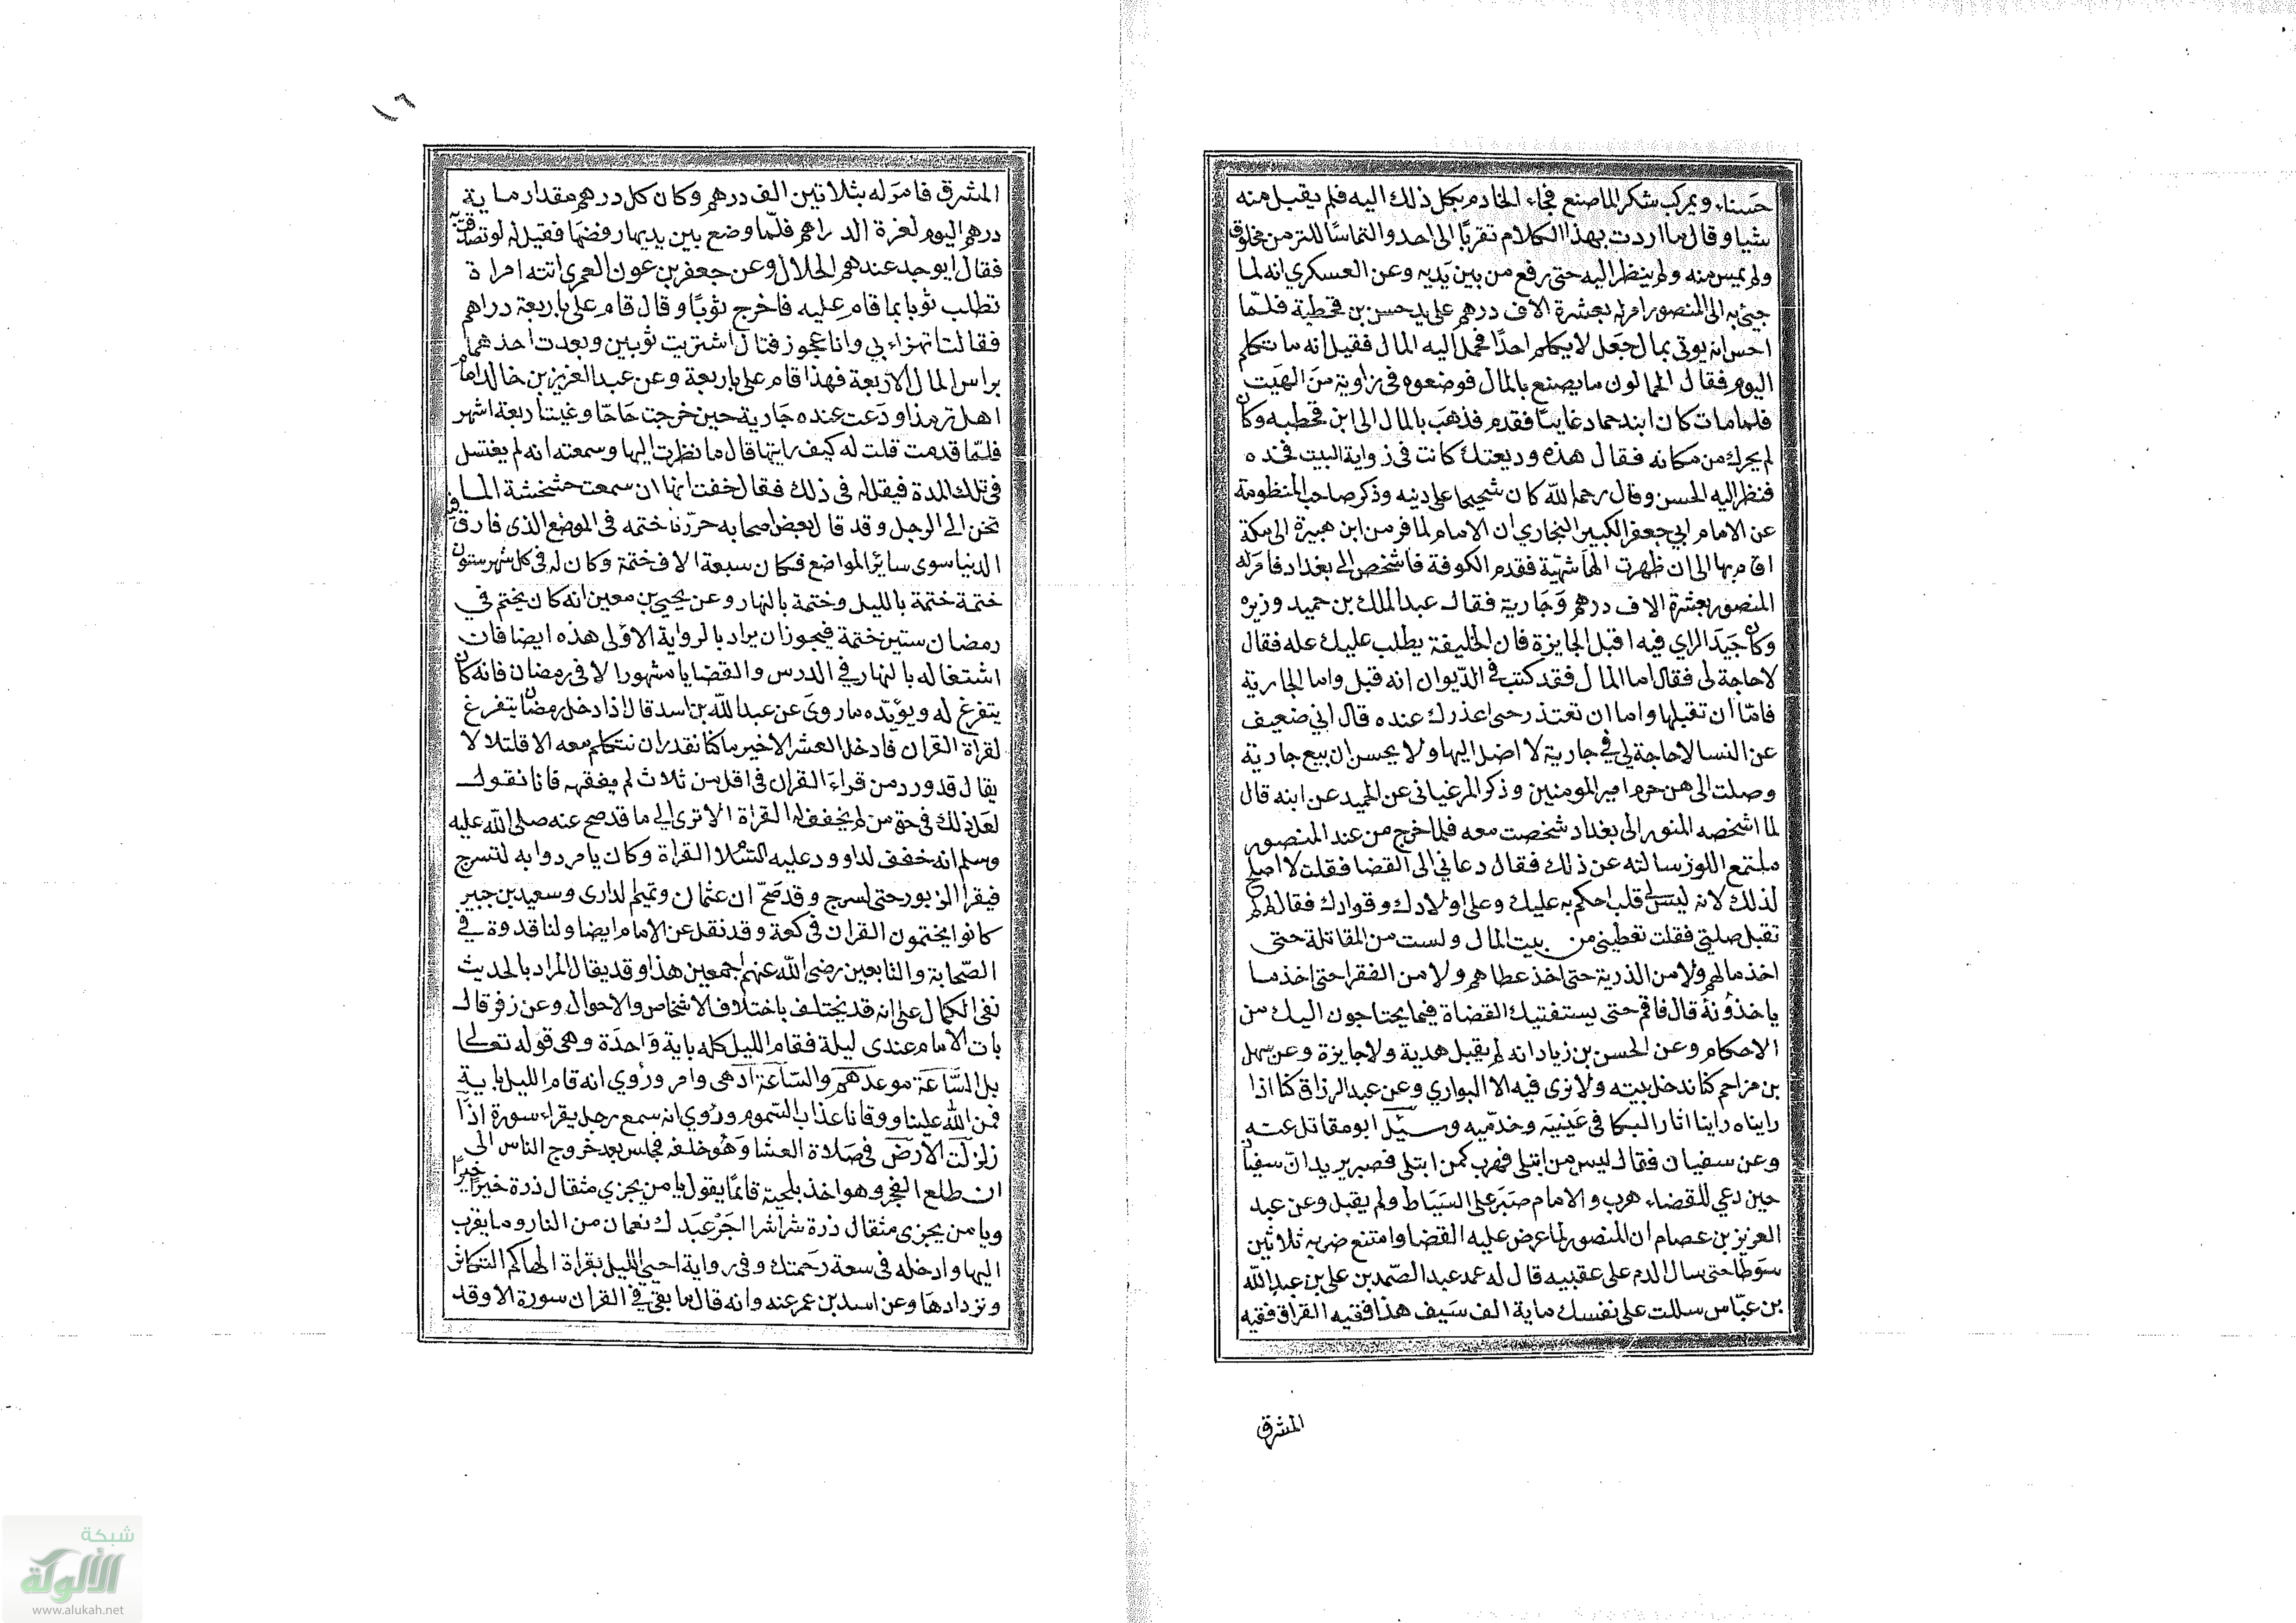 حسناء ويركب شكر لما صنع فجاء الخادم بكل ذلك اليه فلم يقبل منه
شيا وقال ما اردت بهذا الكلام تقربًا الى احد والتماسًا للتر من مخلوق
ولم يمس منه ولم ينظر اليه حتى رفع من بين يديه وعن العسكري انه لما
جيئ به الى المنصور امر له بعشرة الاف درهم على يد حسن بن قحطبة فلمّا
احس انه يوتى بمال جعل لا يكلم احدًا فحمل اليه المال فقيل انه ما تتكلم
اليوم فقال الحمالون ما يصنع بالمال فوضعوه فى زاوية من الهيت
فلما مات كان ابنه حماد غايبًا فقدم فذهب بالمال الى ابن قحطبه وكان
لم يحرك من مكانه فقال هذه وديعتك كانت فى زواية البيت فخذه
فنظر اليه الحسن وقال رحم الله كان شحيحا على دينه وذكر صاحب المنظومة
عن الامام ابي جعفر الكبير البخاري ان الامام لما فر من ابن هبيرة الى مكة
اقام بها الى ان ظهرت الهاشمية فقدم الكوفة فاشخص الى بغداد فامر له
المنصور بعشرة الاف درهم وجارية فقال عبد الملك بن حميد وزيره
وكان جيد الراي فيه اقبل الجايزة فان الخليفة يطلب عليك عله فقال
لا حاجة لى فقال اما المال فقد كتب فى الدّيوان انه قبل واما الجارية
فامّا ان تقبلها واما ان تعتذر حتى اعذرك عنده قال اني ضعيف
عن النسا لا حاجة لي في جارية لا اصل اليها ولا يحسن ان بيع جارية
وصلت الى من حرم امير المومنين وذكر المرغيانى عن الحميد عن ابنه قال
لما اشخصه المنور الى بغداد شخصت معه فلما خرج من عند المنصور
ملتمع اللوز سالته عن ذلك فقال دعاني الى القضا فقلت لا اصلح
لذلك لانه ليس لي قلب احكم به عليك وعلى اولادك وقوادك فقال لم لم
تقبل صلتي فقلت تعطينى من بيت المال ولست من المقاتلة حتى
اخذ مالهم ولا من الذرية حتى اخذ عطاهم ولا من الفقرا حتى اخذ ما
ياخذونه قال فاقم حتى يستفتيك القضاة فيما يحتاجون اليك من
الاحكام وعن الحسن بن زياد انه لم يقبل هدية ولا جايزة وعن سهل
بن مزاحم كنا ندخل بيته ولا نرى فيه الا البواري وعن عبد الرزاق كنا اذا
رايناه راينا اثار البكا فى عينيه وخدّيه وسئل ابو مقاتل عنه
وعن سفيان فقال ليس من ابتلى فهرب كمن ابتلى فصبر يريد ان سفيان
حين دعي للقضاء هرب والامام صبر على السياط ولم يقبل وعن عبد
العزيز بن عصام ان المنصور لما عرض عليه القضا وامتنع ضربه ثلاثين
سوطا حتى سال الدم على عقبيه قال له عمه عبد الصّمد بن على بن عبد الله
بن عبّاس سللت على نفسك ماية الف سيف هذا فقيه القراق فقيه
المشرق
١٦
المشرق فامر له بثلاتين الف درهم وكان كل درهم مقدار ماية
درهم اليوم لعزة الدراهم فلمّا وضع بين يديها رفضها فقيل له لو تصدقت به
فقال ايوجد عندهم الحلال وعن جعفر بن عون العمرى اتته امراة
تطلب ثوبا بما قام عليه فاخرج ثوبًا وقال قام على باربعة دراهم
فقالت اتهزاء بي وانا عجوز فقال اشتريت ثوبين وبعدت احدهما
براس المال الا اربعة فهذا قام على باربعة وعن عبد العزيز بن خالد امام
اهل ترمذ اودعت عنده جارية حين خرجت حاجّا وغبت اربعة اشهر
فلمّا قدمت قلت له كيف رايتها قال ما نظرت اليها وسمعته انه لم يغتسل
فى تلك المدة فيقل له فى ذلك فقال خفت انها ان سمعت خشخشة الما
تحن الى الرجل وقد قال بعض اصحابه حزرنا ختمه فى الموضع الذى فارق فيه
الدنيا سوى ساير المواضع فكان سبعة الاف ختمة وكان له فى كل شهر ستون
ختمة ختمة بالليل وختمة بالنهار وعن يحيى بن معين انه كان يختم في
رمضان ستين ختمة فيجوز ان يراد بالرواية الاولى هذه ايضا فان
اشتغاله بالنهار في الدرس والقضايا مشهورا لا فى رمضان فانه كان
يتفرغ له ويؤيّده ما روى عن عبد الله بن اسد قال اذا دخل رمضان يتفرغ
لقراة القران فاد خل العشر الاخير ما كنا نقدر ان نتكلم معه الا قلتلا لا
يقال قد ورد من قراء القران فى اقل من ثلاث لم يفقهه فانا نقول
لعل ذلك فى حق من لم يخفف له القراة الا ترى الى ما قد صح عنه صلى الله عليه
وسلم انه خفف لداوود عليه السّلا القراة وكان يامر دوابه لتسرج
فيقرا الزبور حتى تسرج وقد صحّ ان عثمان وتميم الدارى وسعيد بن جبير
كانوا يختمون القران فى كعة وقد نقل عن الامام ايضا ولنا قدوة في
الصّحابة والتابعين رضى الله عنهم اجمعين هذا وقد يقال المراد بالحديث
نفى الكمال على انه قد يختلف باختلاف الاشخاص والاحوال وعن زفر قال
بات الامام عندى ليلة فقام الليل كله باية واحدة وهى قوله تعالى
بل السّاعة موعدهم والسّاعة ادهى وامر وروي انه قام الليل باية
فمن الله علينا ووقانا عذاب السّموم وروي انه سمع رجل يقراء سورة اذا
زلزلت الارض فى صلاة العشا وهو خلفه فجلس بعد خروج الناس الى
ان طلع الفجر وهو اخذ بلحيته قائمًا يقول يا من يجزي مثقال ذرة خيرًا خيرًا
ويا من يجزى مثقال ذرة شرا شرا اجر عبدك نعمان من النار وما يقرب
اليها وادخله فى سعة رحمتك وفى رواية احيى الليل بقراة الهاكم التكاثر
ونردادها وعن اسد بن عمر عنه وانه قال ما بقى في القران سورة الا وقد
شبكة
الألوكة
www.alukah.net